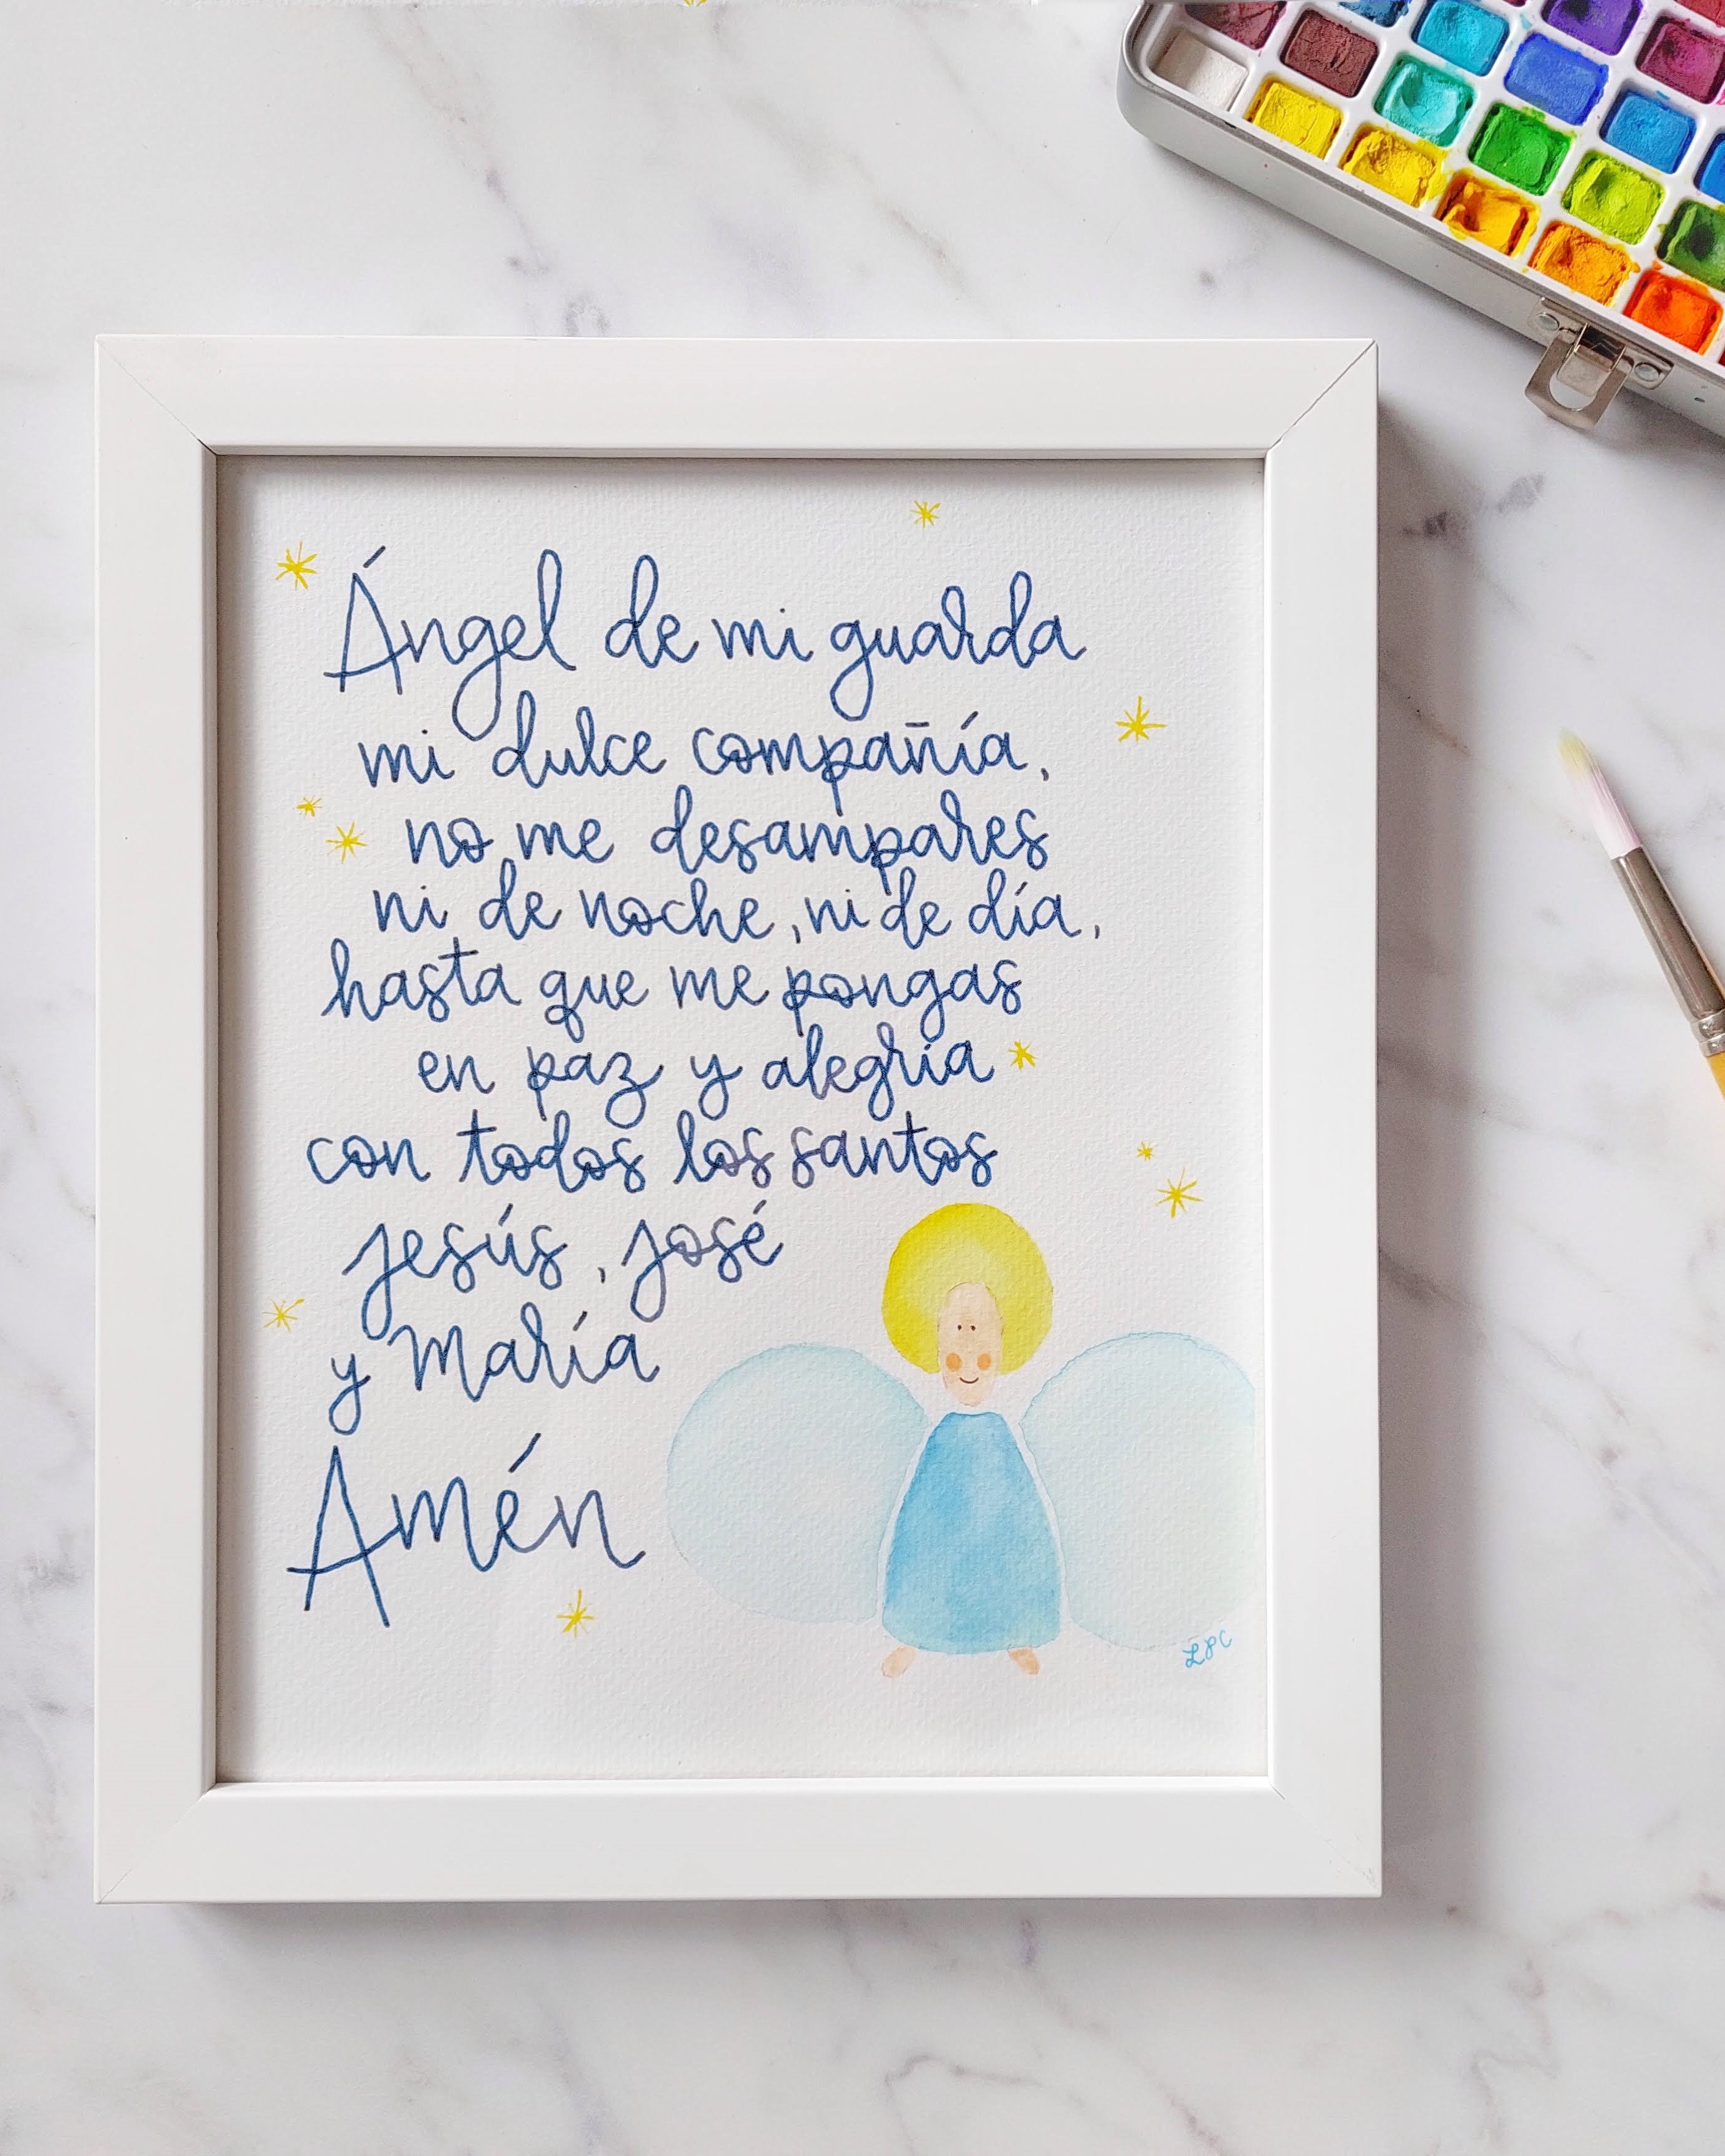 Ángel de mi guarda
mi dulce compañía,
no me desampares
ni de noche, ni de día,
hasta que me pongas
en paz y alegría
con todos los santos
jesús, josé
y María
Amén
LPC